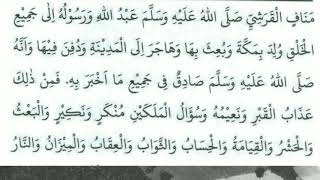 مَنَافِ الْقُرَشِيَّ صَلَّى اللهُ عَلَيْهِ وَسَلَّمَ عَبْدُ اللهِ وَرَسُوْلُهُ اِلَى جَمِيْعِ
الْخَلْقِ وُلِدَ بِمَكَّةَ وَبُعِثَ بِهَا وَهَاجَرَ اِلَى الْمَدِيْنَةِ وَدُفِنَ فِيْهَا وَأَنَّهُ
صَلَّى اللهُ عَلَيْهِ وَسَلَّمَ صَادِقٌ فِى جَمِيْعِ مَا اَخْبَرَ بِهِ. فَمِنْ ذٰلِكَ
عَذَابُ الْقَبْرِ وَنَعِيْمُهُ وَسُؤَالُ الْمَلَكَيْنِ مُنْكَرٍ وَنَكِيْرٍ وَالْبَعْثُ
وَالْحَشْرُ وَالْقِيَامَةُ وَالْحِسَابُ وَالثَّوَابُ وَالْعِقَابُ وَالْمِيْزَانُ وَالنَّارُ